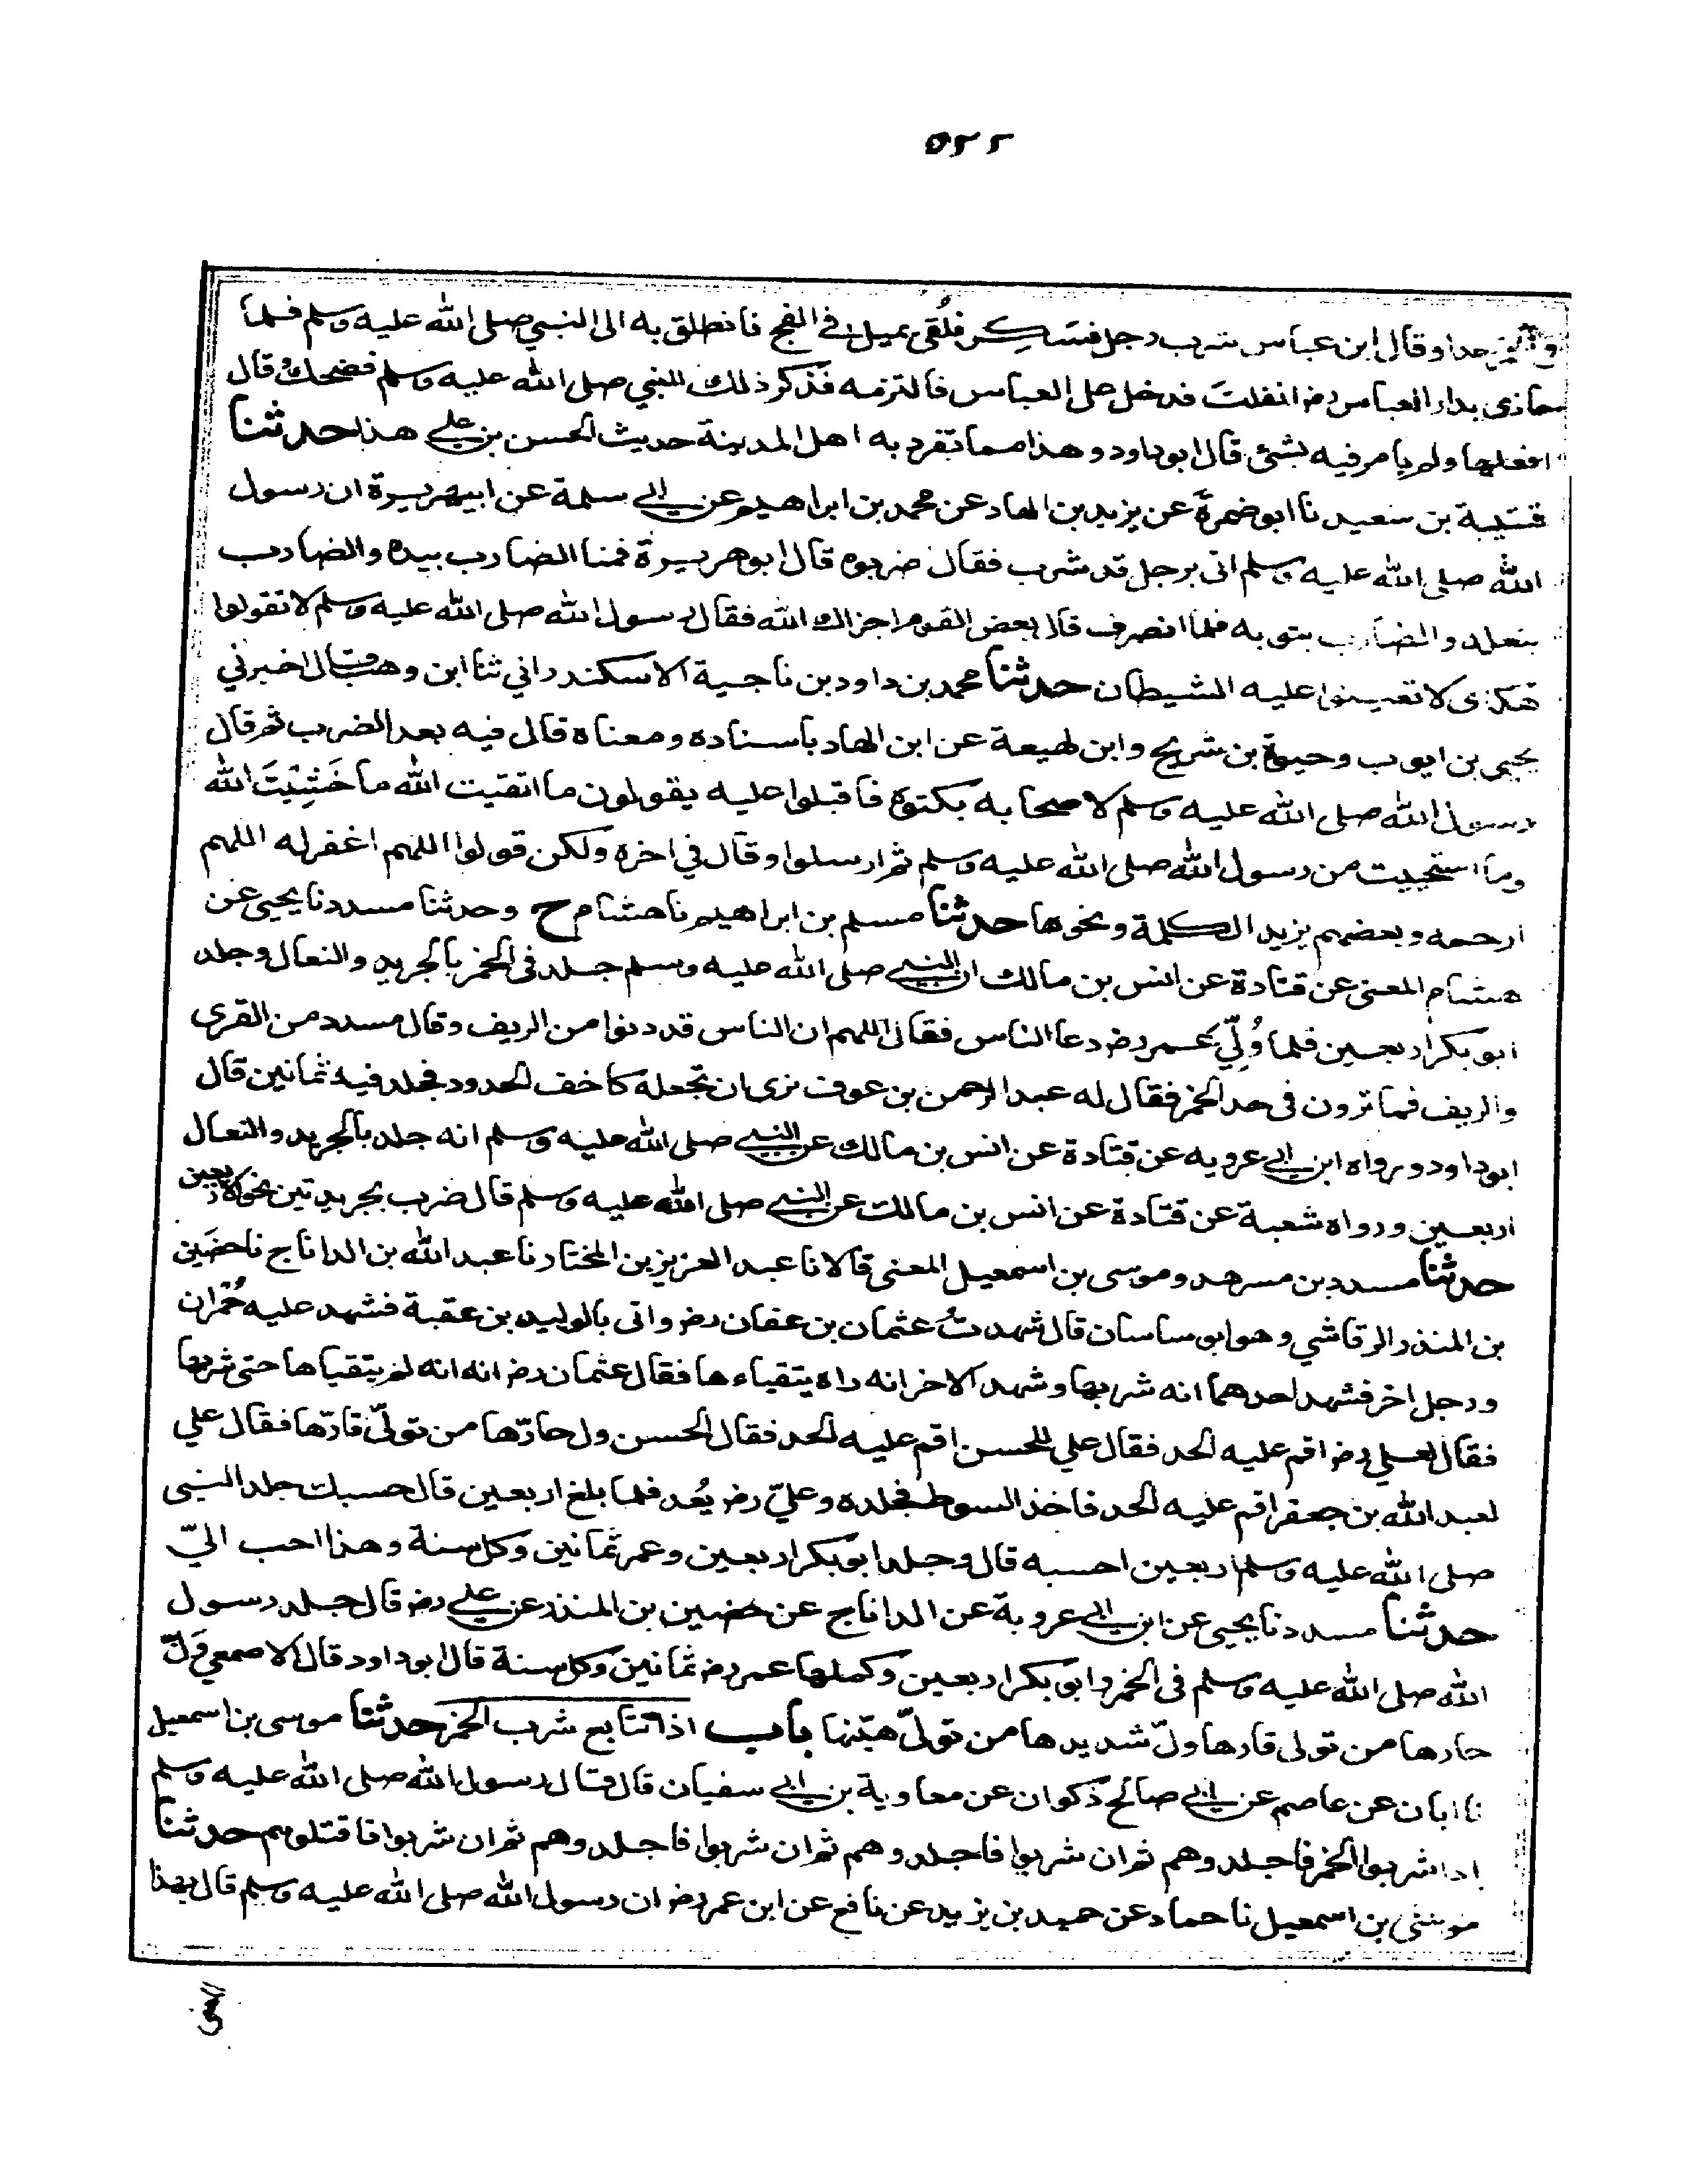 ٥٢٢
حدا وقال ابن عباس شرب رجل فسكر فلُقى يميل فى الفج فانطلق به الى النبي صلى الله عليه وسلم فلما
حاذى بدار العباس رض انفلت فدخل على العباس فالتزمه فذكر ذلك للنبي صلى الله عليه وسلم فضحك وقال
افعلها ولم يامر فيه بشئ قال ابو داود وهذا مما تفرد به اهل المدينة حديث الحسن بن علي هذا حدثنا
قتيبة بن سعيد نا ابو ضمرة عن يزيد بن الهاد عن محمد بن ابراهيم عن ابي سلمة عن ابيهريرة ان رسول
الله صلى الله عليه وسلم اتى برجل قد شرب فقال ضربوه قال ابو هريرة فمنا الضارب بيده والضارب
بنعله والضارب بثوبه فلما انصرف قال بعض القوم اخزاك الله فقال رسول الله صلى الله عليه وسلم لا تقولوا
هكذى لا تعينوا عليه الشيطان حدثنا محمد بن داود بن ناجية الاسكندراني ثنا ابن وهب قال اخبرني
يحيى بن ايوب وحيوة بن شريح وابن لهيعة عن ابن الهاد باسناده ومعناه قال فيه بعد الضرب ثم قال
رسول الله صلى الله عليه وسلم لاصحابه بكتوه فاقبلوا عليه يقولون ما اتقيت الله ما خَشِيْتَ الله
وما استحييت من رسول الله صلى الله عليه وسلم ثم ارسلوا وقال في اخره ولكن قولوا اللهم اغفر له اللهم
ارحمه وبعضهم يزيد الكلمة ونحوها حدثنا مسلم بن ابراهيم نا هشام ح وحدثنا مسدد نا يحيى عن
هشام المعنى عن قتادة عن انس بن مالك ان النبي صلى الله عليه وسلم جلد فى الخمر بالجريد والنعال وجلد
ابو بكر اربعين فلما وُلّي عمر رض دعا الناس فقال اللهم ان الناس قد دنوا من الريف وقال مسدد من القرى
والريف فما ترون فى حد الخمر فقال له عبد الرحمن بن عوف نرى ان تجعله كاخف الحدود فجلد فيه ثمانين قال
ابو داود ورواه ابن ابي عروبه عن قتادة عن انس بن مالك عن النبي صلى الله عليه وسلم انه جلد بالجريد والنعال
اربعين ورواه شعبة عن قتادة عن انس بن مالك عن النبي صلى الله عليه وسلم قال ضرب بجريدتين نحو الاربعين
حدثنا مسدد بن مسرهد وموسى بن اسمعيل المعنى قالا نا عبد العزيز بن المختار نا عبد الله بن الداناج نا حضين
بن المنذر الرقاشي وهو ابو ساسان قال شهدتُ عثمان بن عفان رض واتى بالوليد بن عقبة فشهد عليه حُمران
ورجل اخر فشهد احدهما انه شربها وشهد الاخر انه راه يتقياءها فقال عثمان رض انه انه لم يتقياها حتى شربها
فقال لعلي رض اقم عليه الحد فقال علي للحسن اقم عليه الحد فقال الحسن ول حارّها من تولّى قارّها فقال علي
لعبد الله بن جعفر اقم عليه الحد فاخذ السوط فجلده وعليّ رض يُعد فلما بلغ اربعين قال حسبك جلد النبى
صلى الله عليه وسلم اربعين احسبه قال وجلد ابو بكر اربعين وعمر ثمانين وكل سنة وهذا احب اليّ
حدثنا مسدد نا يحيى عن ابن ابي عروبة عن الداناج عن حضين بن المنذر عن علي رض قال جلد رسول
الله صلى الله عليه وسلم فى الخمر وابو بكر اربعين وكملها عمر رض ثمانين وكل سنة قال ابو داود قال الاصمعي وَلّ
حارها من تولى قارها ولّ شديدها من تولّى هيّنها باب اذا تتابع شرب الخمر حدثنا موسى بن اسمعيل
نا ابان عن عاصم عن ابي صالح ذكوان عن معاوية بن ابي سفيان قال قال رسول الله صلى الله عليه وسلم
اذا شربوا الخمر فاجلدوهم ثم ان شربوا فاجلدوهم ثم ان شربوا فاجلدوهم ثم ان شربوا فاقتلوهم حدثنا
موسى بن اسمعيل نا حماد عن حميد بن يزيد عن نافع عن ابن عمر رض ان رسول الله صلى الله عليه وسلم قال بهذا